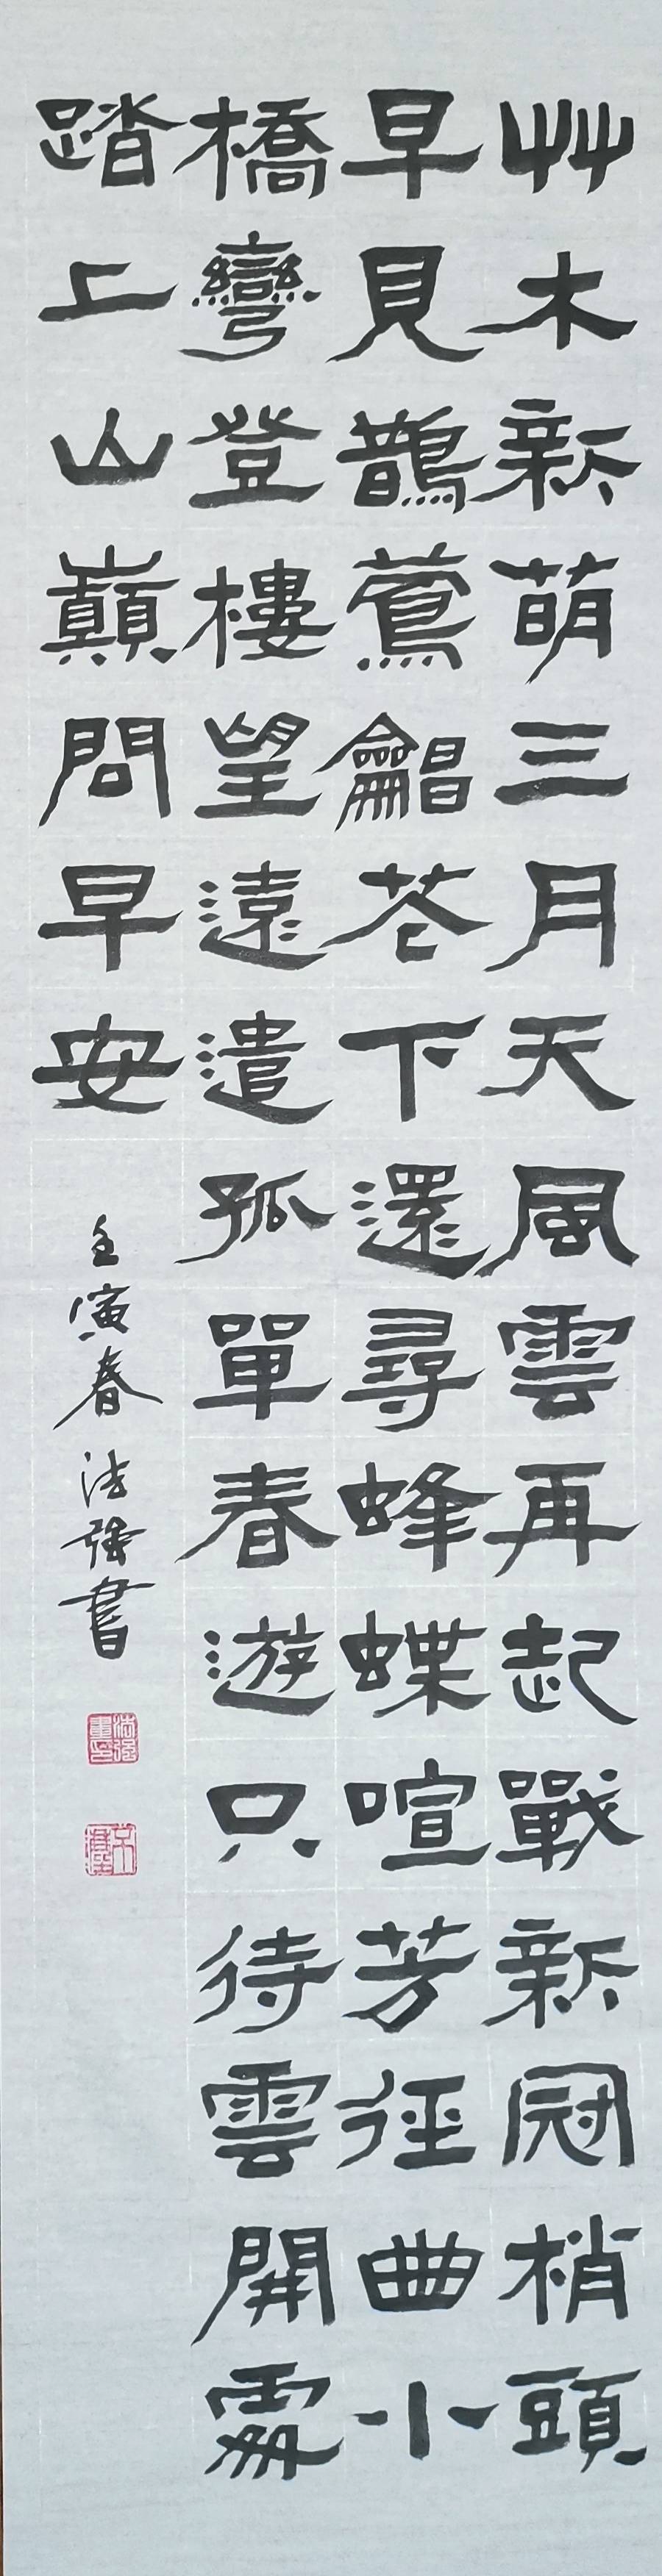 艸木新萌三月天風雲再起戰新冠梢頭
早見鵲鶯龢苍下還尋蜂蝶喧芳徑曲小
橋彎登樓望遠遣孤單春遊只待雲開處
踏上山巔問早安
壬寅春法強書